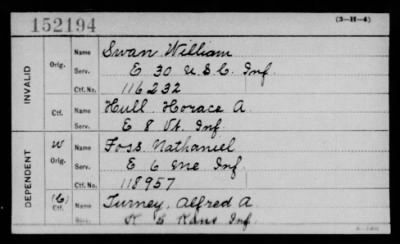 152194 (3-H-4)
INVALID
Orig. Name Swan William
Serv. E 30 U.S.C. Inf.
Ctf. No. 116232
Ctf. Name Hull Horace A
Serv. E 8 Vt. Inf
DEPENDENT
W Orig. Name Foss Nathaniel
Serv. E 6 Me Inf.
Ctf. No. 118957
(C) Ctf. Name Turney, Alfred A.
Serv. K 6 Kans Inf.